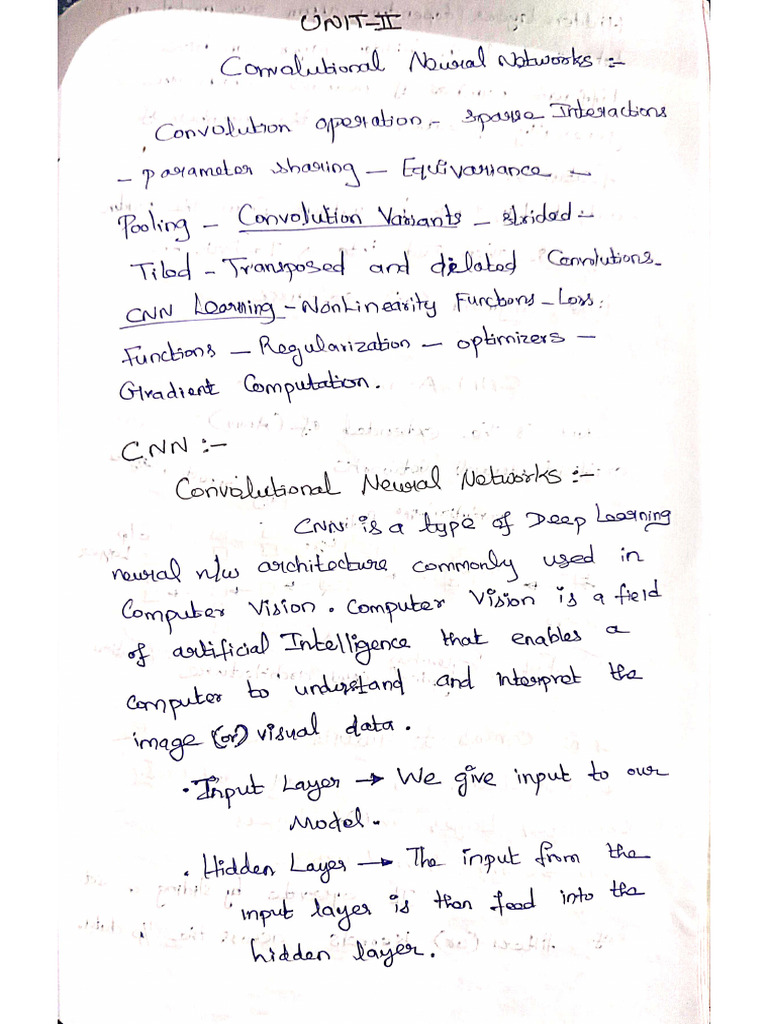 UNIT-II
Convalutional Neural Networks :-
Convolution operation - sparse Interactions
- parameter sharing - Equivariance -
Pooling - Convolution Variants - strided -
Tiled - Transposed and dilated Convolutions -
CNN Learning - NonLinearity Functions - Loss
Functions - Regularization - optimizers -
Gradient Computation.
CNN :-
Convolutional Neural Networks :-
CNN is a type of Deep Learning
neural n/w architecture commonly used in
Computer Vision. Computer Vision is a field
of artificial Intelligence that enables a
computer to understand and interpret the
image (or) visual data.
• Input Layer → We give input to our
Model.
• Hidden Layer → The input from the
input layer is then feed into the
hidden layer.